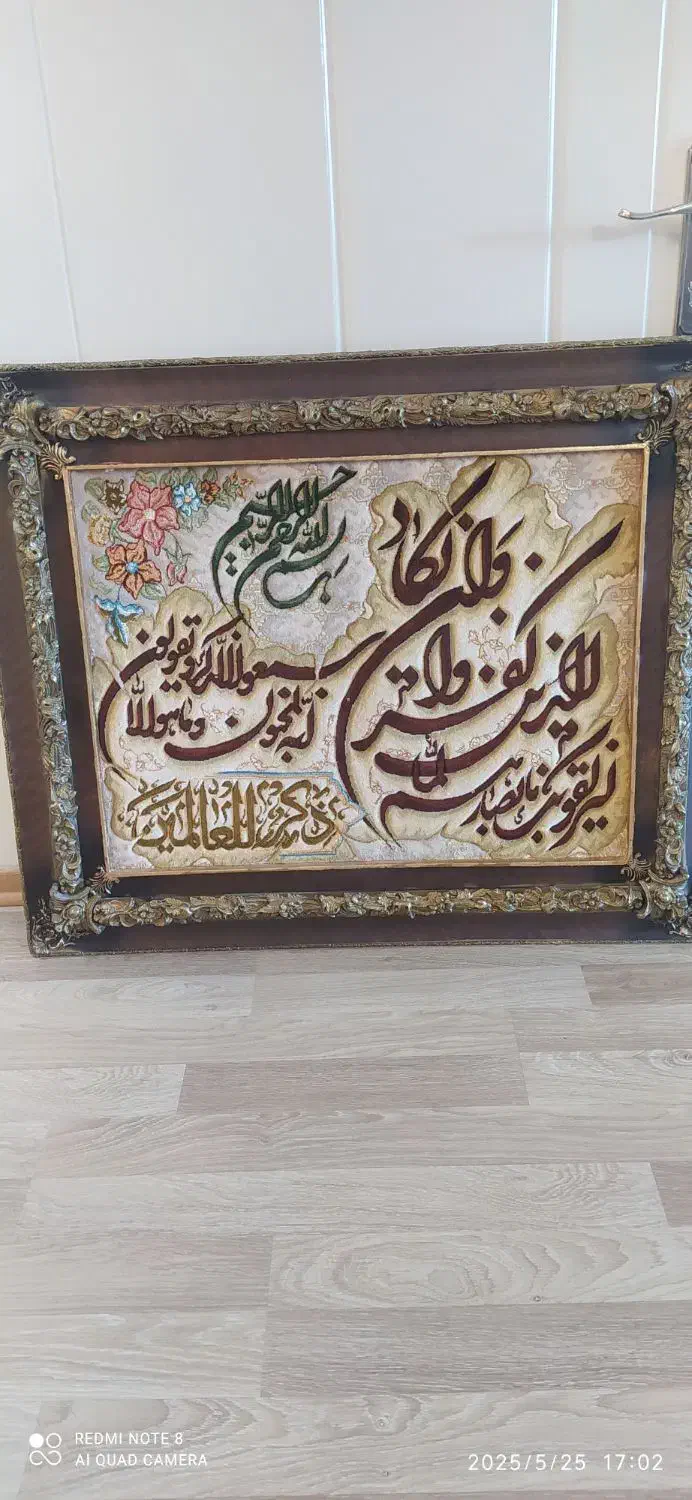 بسم الله الرحمن الرحیم
وان یکاد
الذین کفروا
لیزلقونک بابصارهم لما
سمعوا الذکر و یقولون
انه لمجنون وما هو الا
ذکر للعالمین
REDMI NOTE 8
AI QUAD CAMERA
2025/5/25 17:02